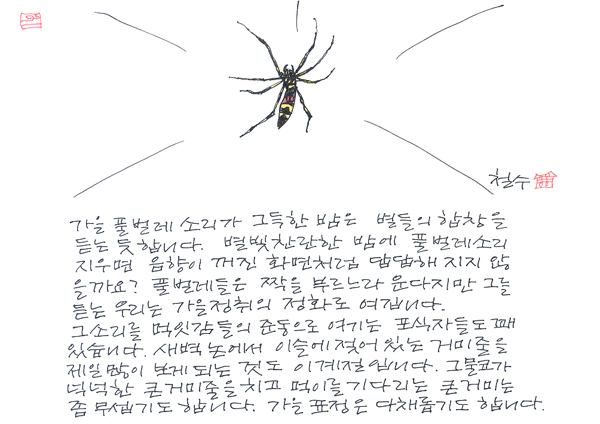 철수
가을 풀벌레 소리가 그득한 밤은 별들의 합창을
듣는 듯 합니다. 별빛찬란한 밤에 풀벌레소리
지우면 음향이 꺼진 화면처럼 답답해 지지 않
을까요? 풀벌레들은 짝을 부르느라 운다지만 그를
듣는 우리는 가을정취의 정화로 여깁니다.
그소리를 먹잇감들의 준동으로 여기는 포식자들도 꽤
있습니다. 새벽 논에서 이슬에 젖어 있는 거미줄을
제일 많이 보게 되는 것도 이계절입니다. 그물코가
넉넉한 큰거미줄을 치고 먹이를 기다리는 큰거미는
좀 무섭기도 합니다. 가을 표정은 다채롭기도 합니다.